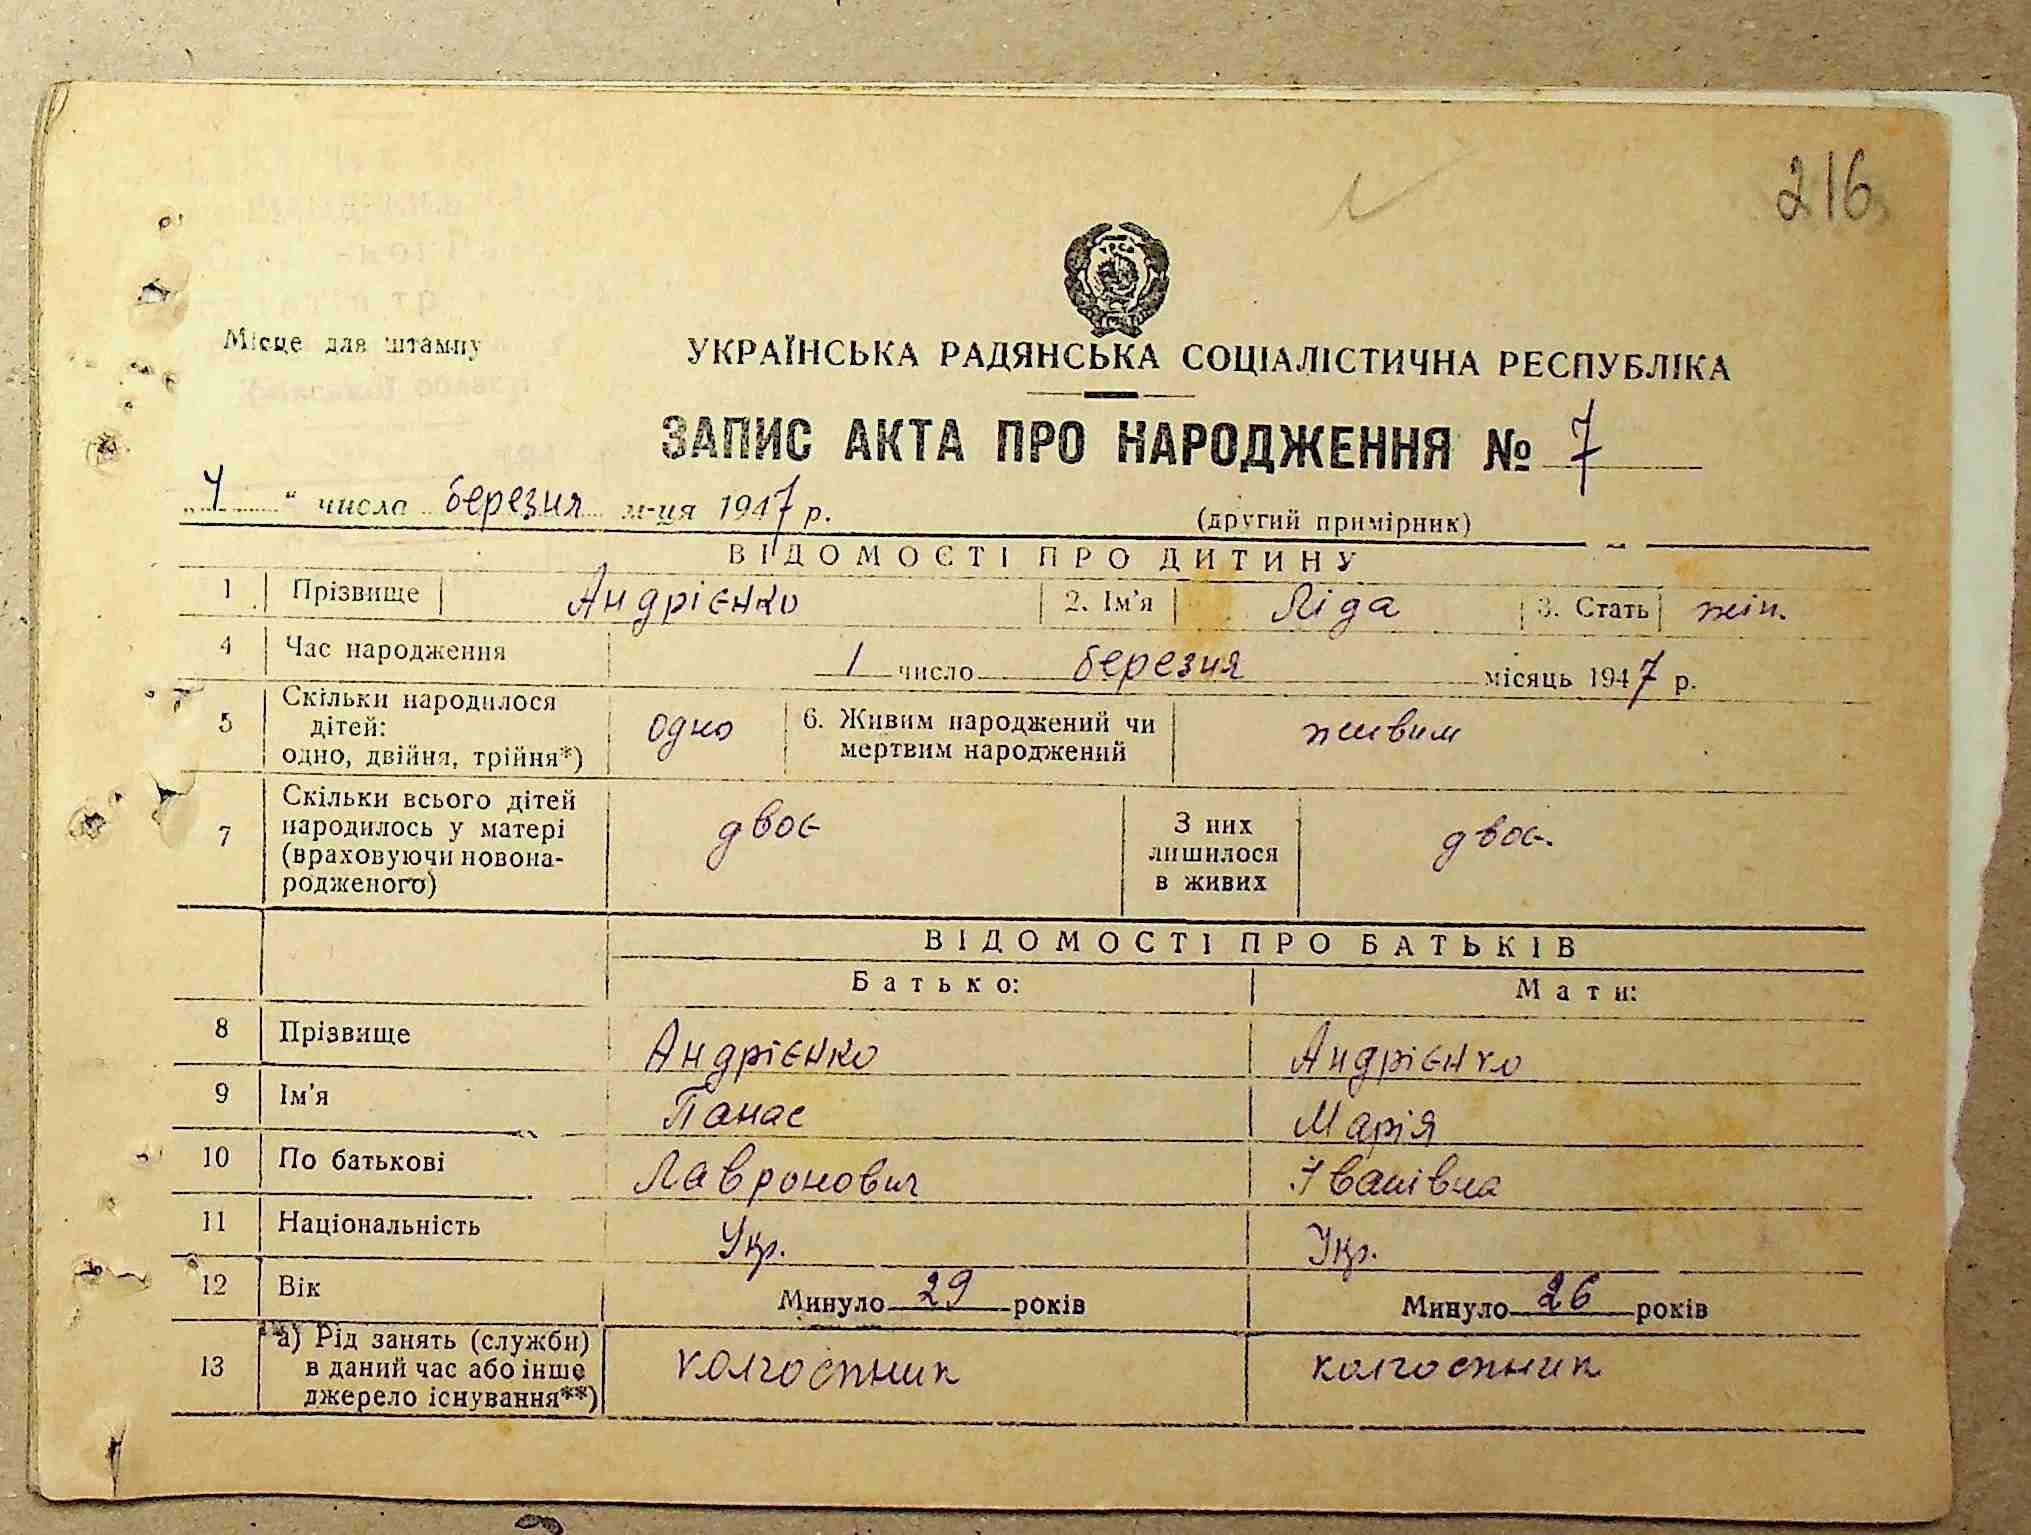 216
УРСР
Місце для штампу
УКРАЇНСЬКА РАДЯНСЬКА СОЦІАЛІСТИЧНА РЕСПУБЛІКА
ЗАПИС АКТА ПРО НАРОДЖЕННЯ № 7
„4“ числа березня м-ця 1947 р.
(другий примірник)
ВІДОМОСТІ ПРО ДИТИНУ
1 Прізвище Андрієнко 2. Ім'я Ліда 3. Стать жін.
4 Час народження 1 число березня місяць 1947 р.
5 Скільки народилося дітей: одно, двійня, трійня*) одно 6. Живим народжений чи мертвим народжений живим
7 Скільки всього дітей народилось у матері (враховуючи новона-родженого) двоє З них лишилося в живих двоє.
ВІДОМОСТІ ПРО БАТЬКІВ
Батько: Мати:
8 Прізвище Андрієнко Андрієнко
9 Ім'я Панас Марія
10 По батькові Лавронович Іванівна
11 Національність Укр. Укр.
12 Вік Минуло 29 років Минуло 26 років
13 а) Рід занять (служби) в даний час або інше джерело існування**) колгоспник колгоспник